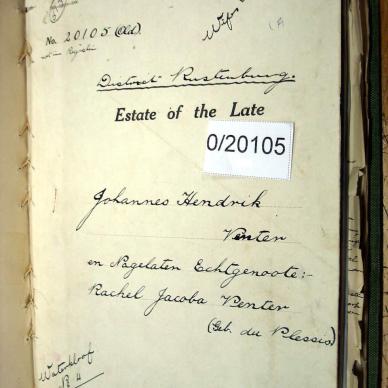 No. 20105 (Old).
not in Register
Wife
District Rustenburg.
Estate of the Late
0/20105
Johannes Hendrik
Venter
en Nagelaten Echtgenoote:-
Rachel Jacoba Venter
(Geb. du Plessis)
Waterkloof